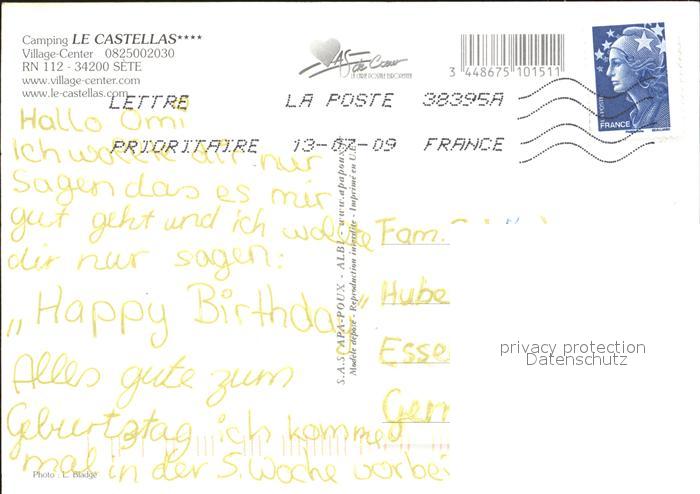 Camping LE CASTELLAS****
Village-Center 0825002030
RN 112 - 34200 SÈTE
www.village-center.com
www.le-castellas.com
AS de Cœur
LA CARTE POSTALE EUROPÉENNE
3 448675 101511
FRANCE
LETTRE LA POSTE 38395A
PRIORITAIRE 13-07-09 FRANCE
Hallo Omi
Ich wollte dir nur
sagen das es mir
gut geht und ich wollte
dir nur sagen:
„Happy Birthday"
Alles gute zum
Geburtztag ich komme
mal in der 5. Woche vorbei
S.A.S. APA-POUX - ALBI - www.apapoux
Modèle déposé - Reproduction interdite - Imprimé en U.E.
Fam.
Hube
Esse
Germ
privacy protection
Datenschutz
Photo : L. Bladge